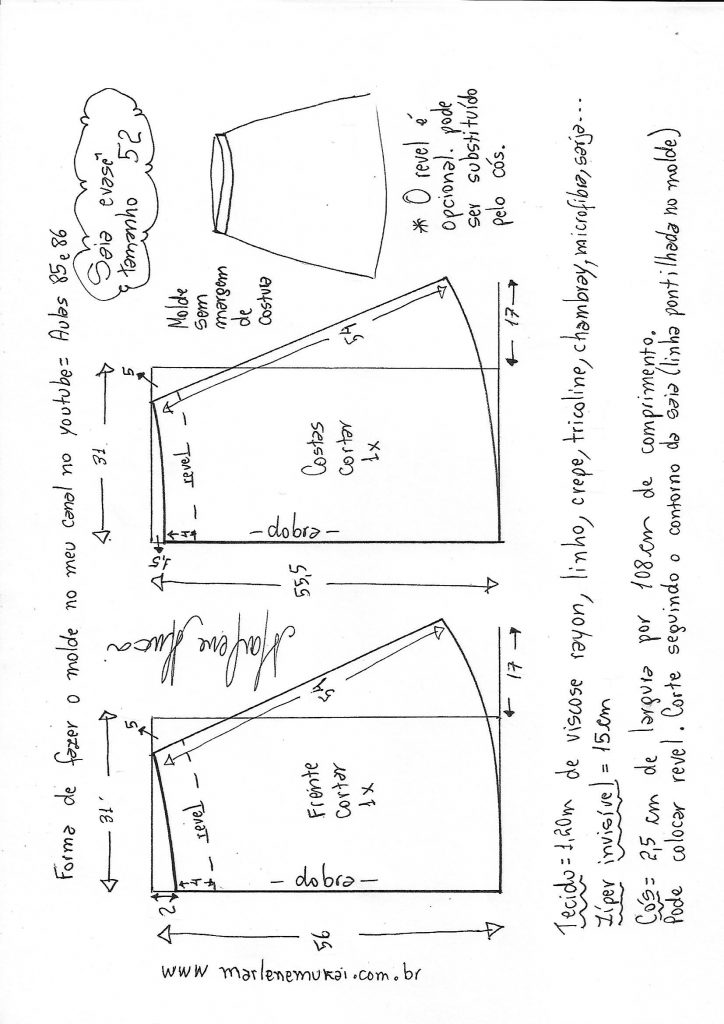 Forma de fazer o molde no meu canal no youtube= Aulas 85 e 86
Saia evasê
tamanho 52
31
5
2
4
revel
Frente
Cortar
1x
- dobra -
54
56
17
Marlene Mukai
31
5
1,5
4
revel
Costas
Cortar
1x
- dobra -
54
55,5
17
Molde
sem
margem
de
costura
* O revel é
opcional. pode
ser substituído
pelo cós.
www marlenemukai.com.br
Tecido= 1,20m de viscose rayon, linho, crepe, tricoline, chambray, microfibra, sarja...
Zíper invisível = 15cm
Cós= 2,5 cm de largura por 108cm de comprimento.
Pode colocar revel. Corte seguindo o contorno da saia (linha pontilhada no molde)